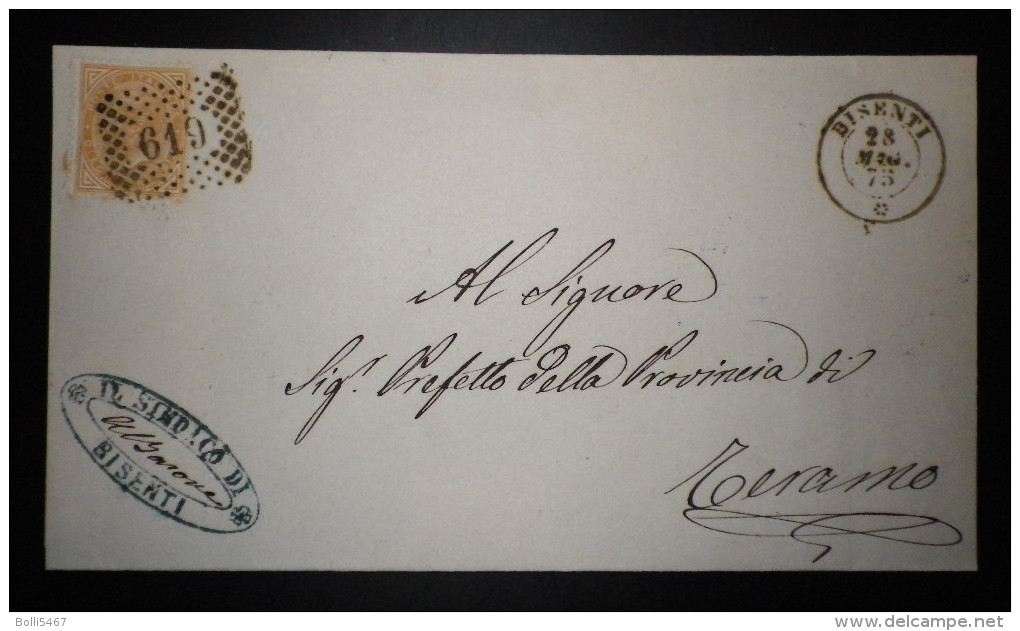 619
BISENTI
28
MAG.
75
Al Signore
Sigr. Prefetto della Provincia di
Teramo
IL SINDACO DI
BISENTI
Bolli5467
www.delcampe.net